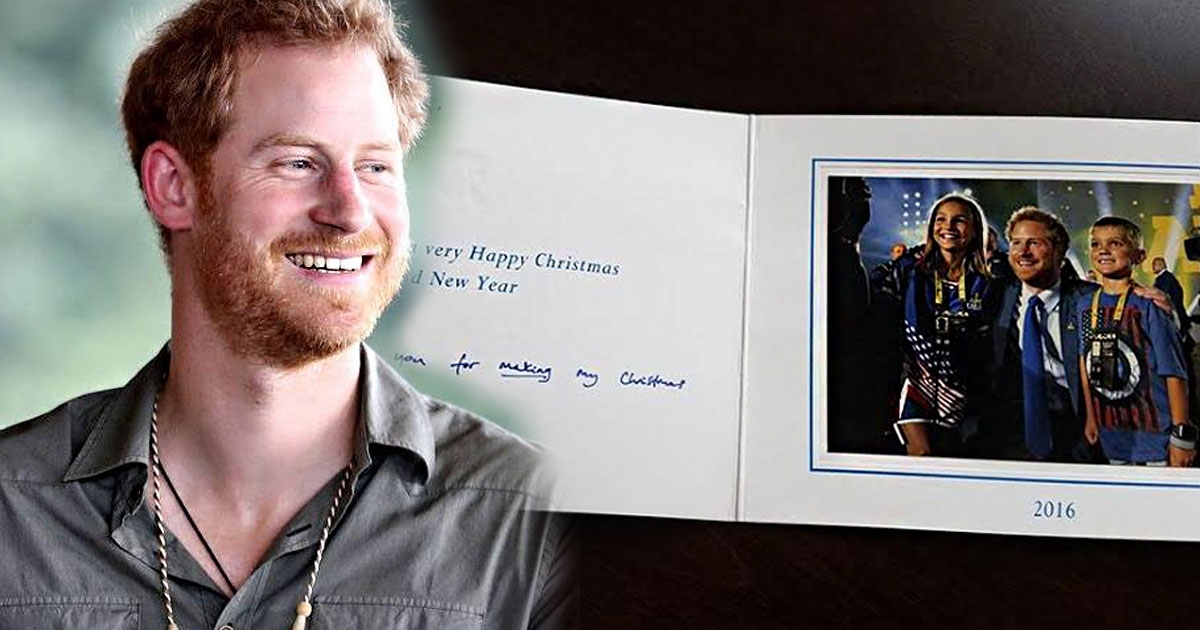 very Happy Christmas
New Year
you for making my Christmas
2016